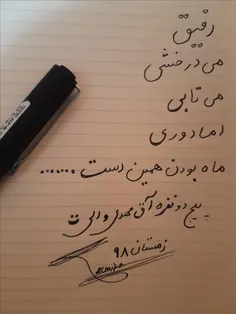 رفیق
می درخشی
می تابی
اما دوری
ماه بودن همین ست .......
پیج دو نفره آق مهدی و الی ت
زمستان ۹۸